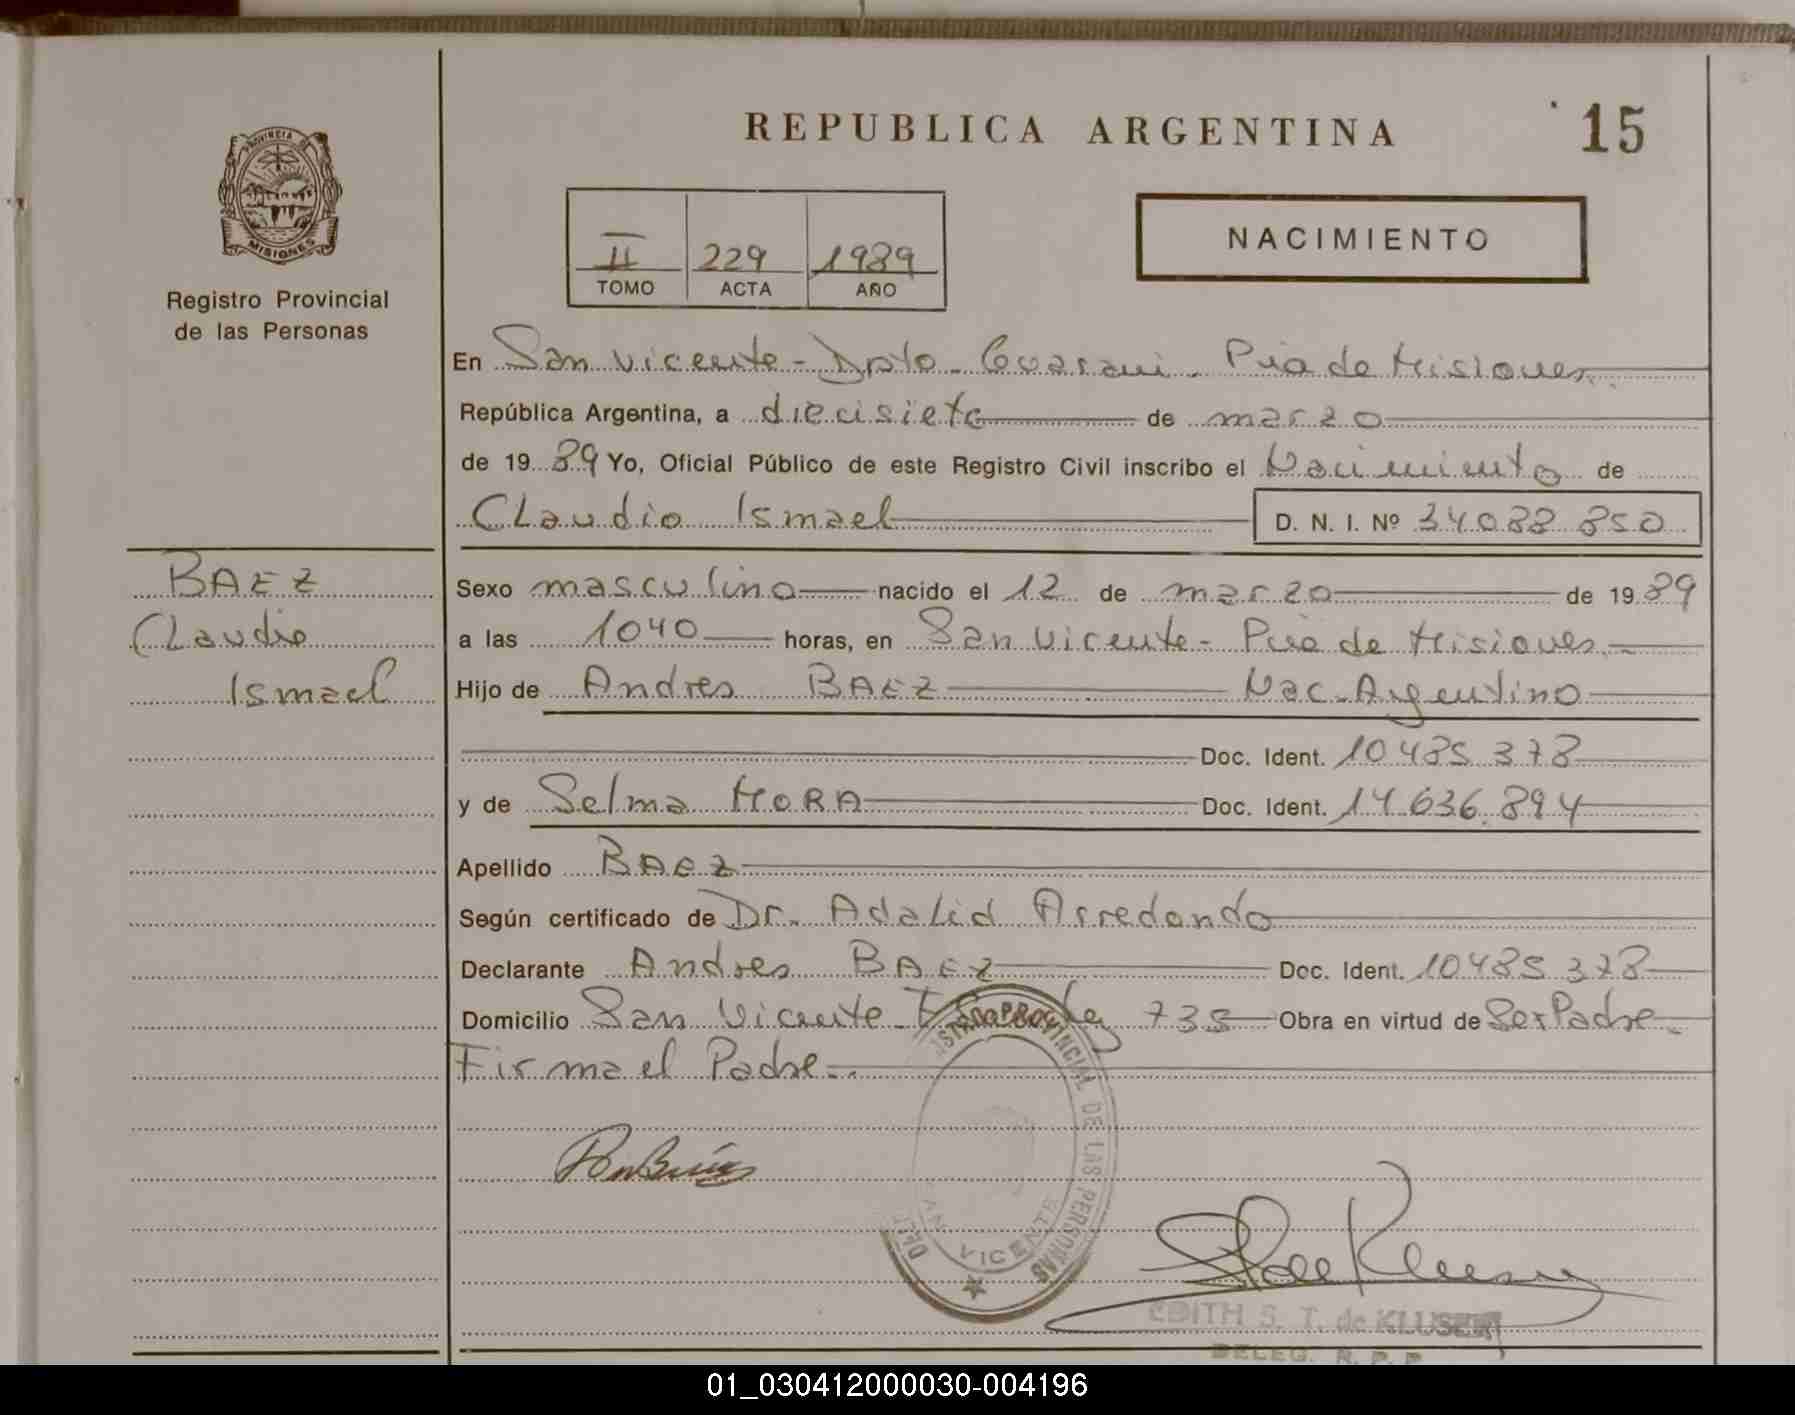 REPUBLICA ARGENTINA
15
PROVINCIA DE
MISIONES
Registro Provincial
de las Personas
II 229 1989
TOMO ACTA AÑO
NACIMIENTO
En San Vicente - Dpto - Guarani - Pcia de Misiones
República Argentina, a diecisiete de marzo
de 19 89 Yo, Oficial Público de este Registro Civil inscribo el Nacimiento de
Claudio Ismael D. N. I. Nº 34.088 850
BAEZ
Claudio
Ismael
Sexo masculino nacido el 12 de marzo de 19 89
a las 1040 horas, en San Vicente - Pcia de Misiones.-
Hijo de Andres BAEZ Nac. Argentino
Doc. Ident. 10.485.378
y de Selma MORA Doc. Ident. 14.636.894
Apellido BAEZ
Según certificado de Dr. Adalid Arredondo
Declarante Andres BAEZ Doc. Ident. 10.485.378
Domicilio San Vicente 735 Obra en virtud de Ser Padre.-
Firma el Padre.-
REGISTRO PROVINCIAL DE LAS PERSONAS
SAN VICENTE
EDITH S. T. de KLUSER
DELEG. R. P. P.
01_030412000030-004196